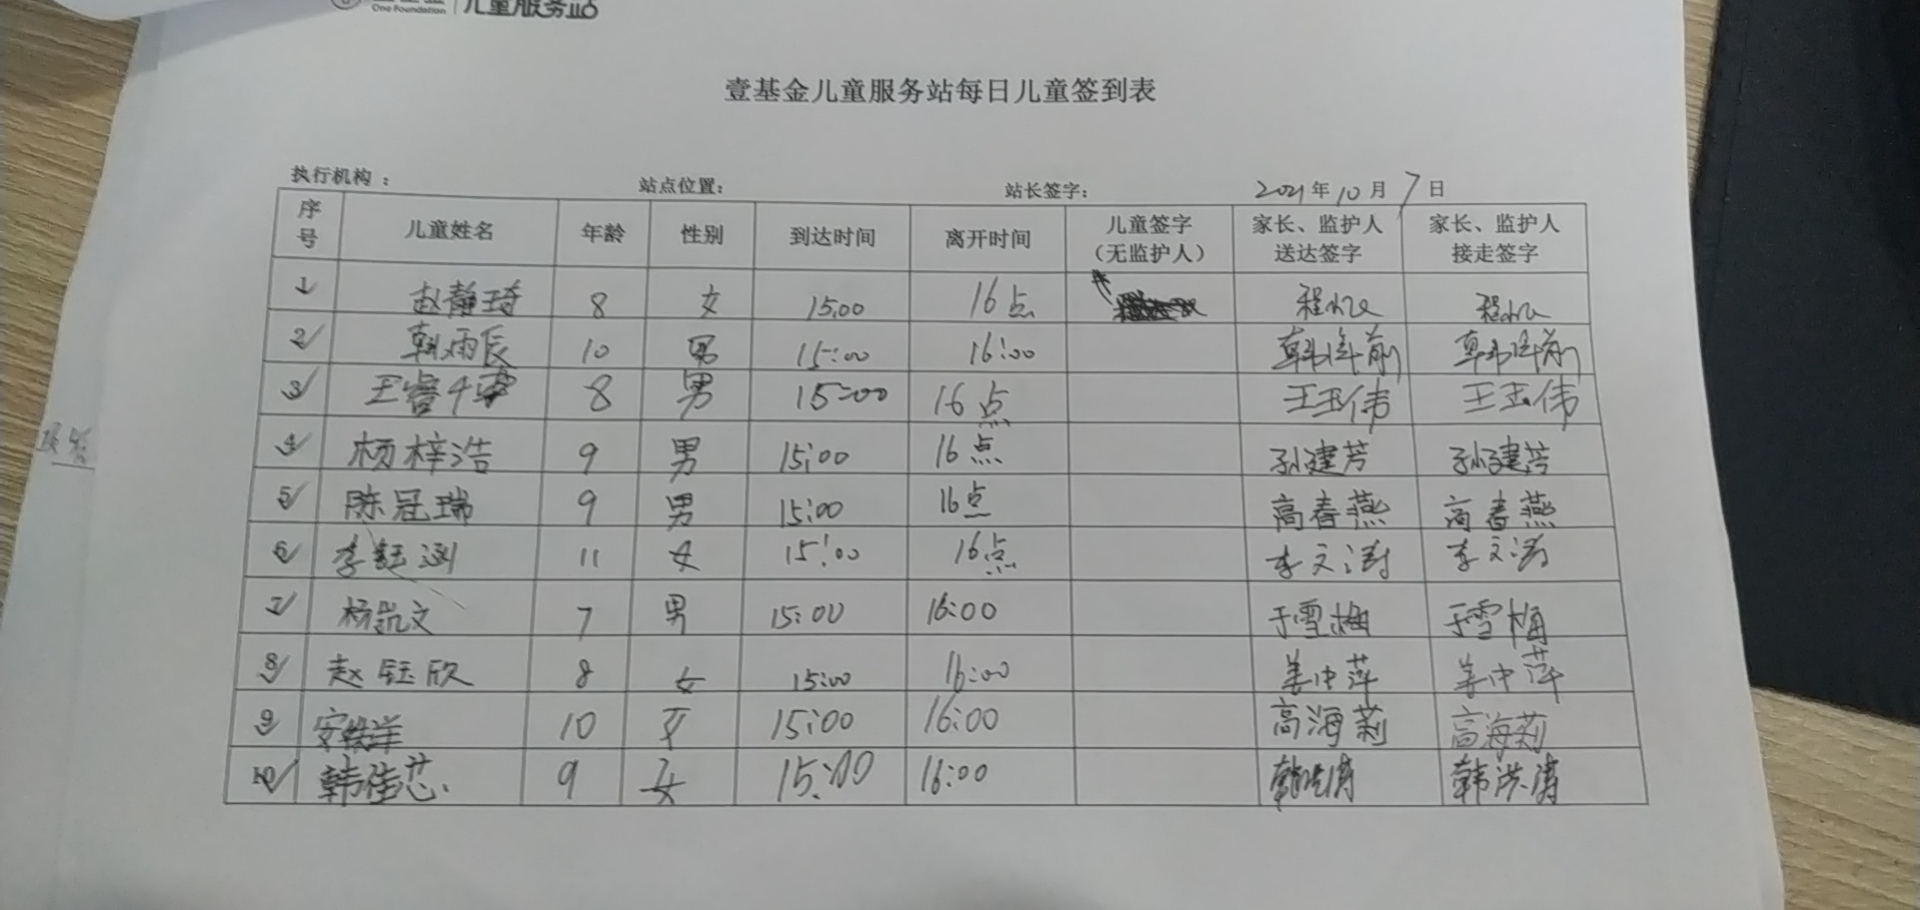 One Foundation 儿童服务站
壹基金儿童服务站每日儿童签到表
执行机构： 站点位置： 站长签字： 2021年10月7日
序号 儿童姓名 年龄 性别 到达时间 离开时间 儿童签字（无监护人） 家长、监护人送达签字 家长、监护人接走签字
1 赵静琦 8 女 15:00 16点
2 韩雨辰 10 男 15:00 16:00
3 王睿 8 男 15:00 16点 王玉伟 王玉伟
4 杨梓浩 9 男 15:00 16点 孙建芳 孙建芳
5 陈冠瑞 9 男 15:00 16点 高春燕 高春燕
6 李钰涵 11 女 15:00 16点 李文涛 李文涛
7 杨凯文 7 男 15:00 16:00 于雪梅 于雪梅
8 赵钰欣 8 女 15:00 16:00 姜中萍 姜中萍
9 安 10 女 15:00 16:00 高海莉 高海莉
10 韩佳芯 9 女 15:00 16:00 韩洪涛 韩洪涛